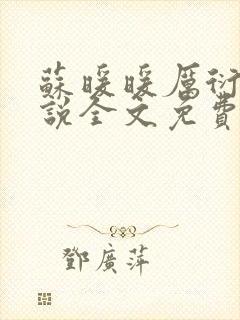 蘇暖暖厲衍
說全文免費
鄧廣萍